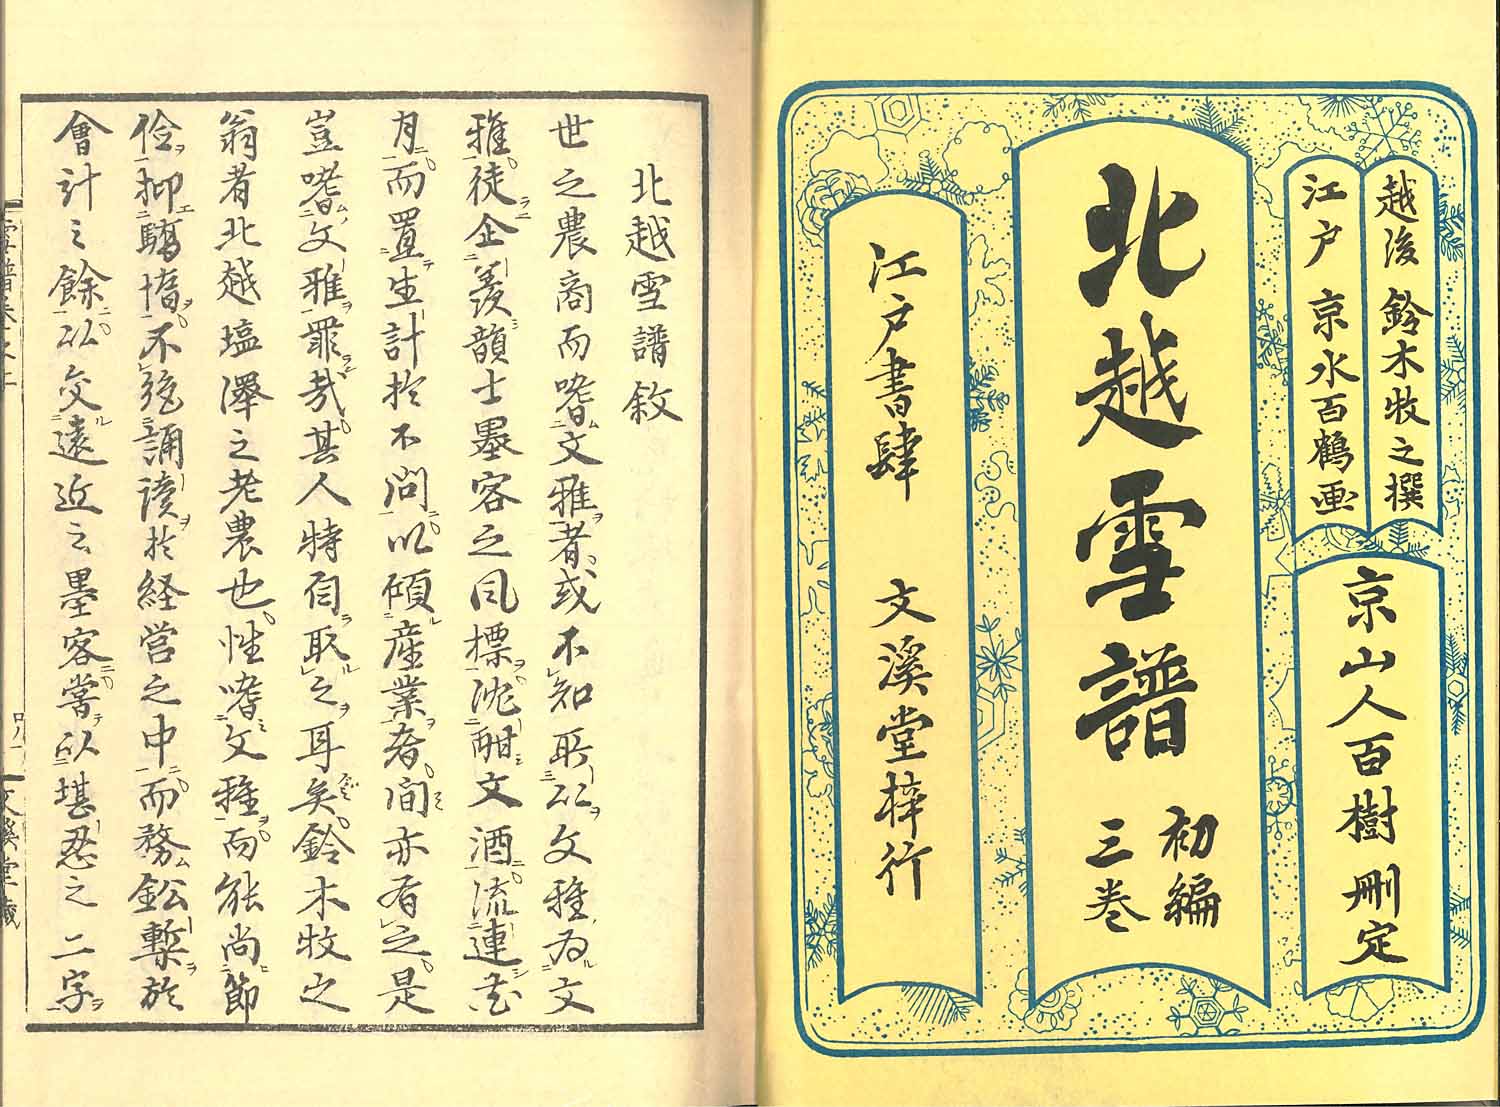 越後 鈴木牧之撰
江戸 京水百鶴画
京山人百樹刪定
北越雪譜
初編
三巻
江戸書肆 文溪堂梓行
北越雪譜敘
世之農商而嗜文雅者或不知所以文雅為文
雅徒企羨韻士墨客之風標沈酣文酒流連花
月而置生計於不問以傾産業者間亦有之是
豈嗜文雅罪哉其人特自取之耳矣鈴木牧之
翁者北越塩澤之老農也性嗜文雅而能尚節
儉抑驕惰不廃誦読於経営之中而務鉛槧於
會計之餘以交遠近之墨客嘗以堪忍之二字
文溪堂藏